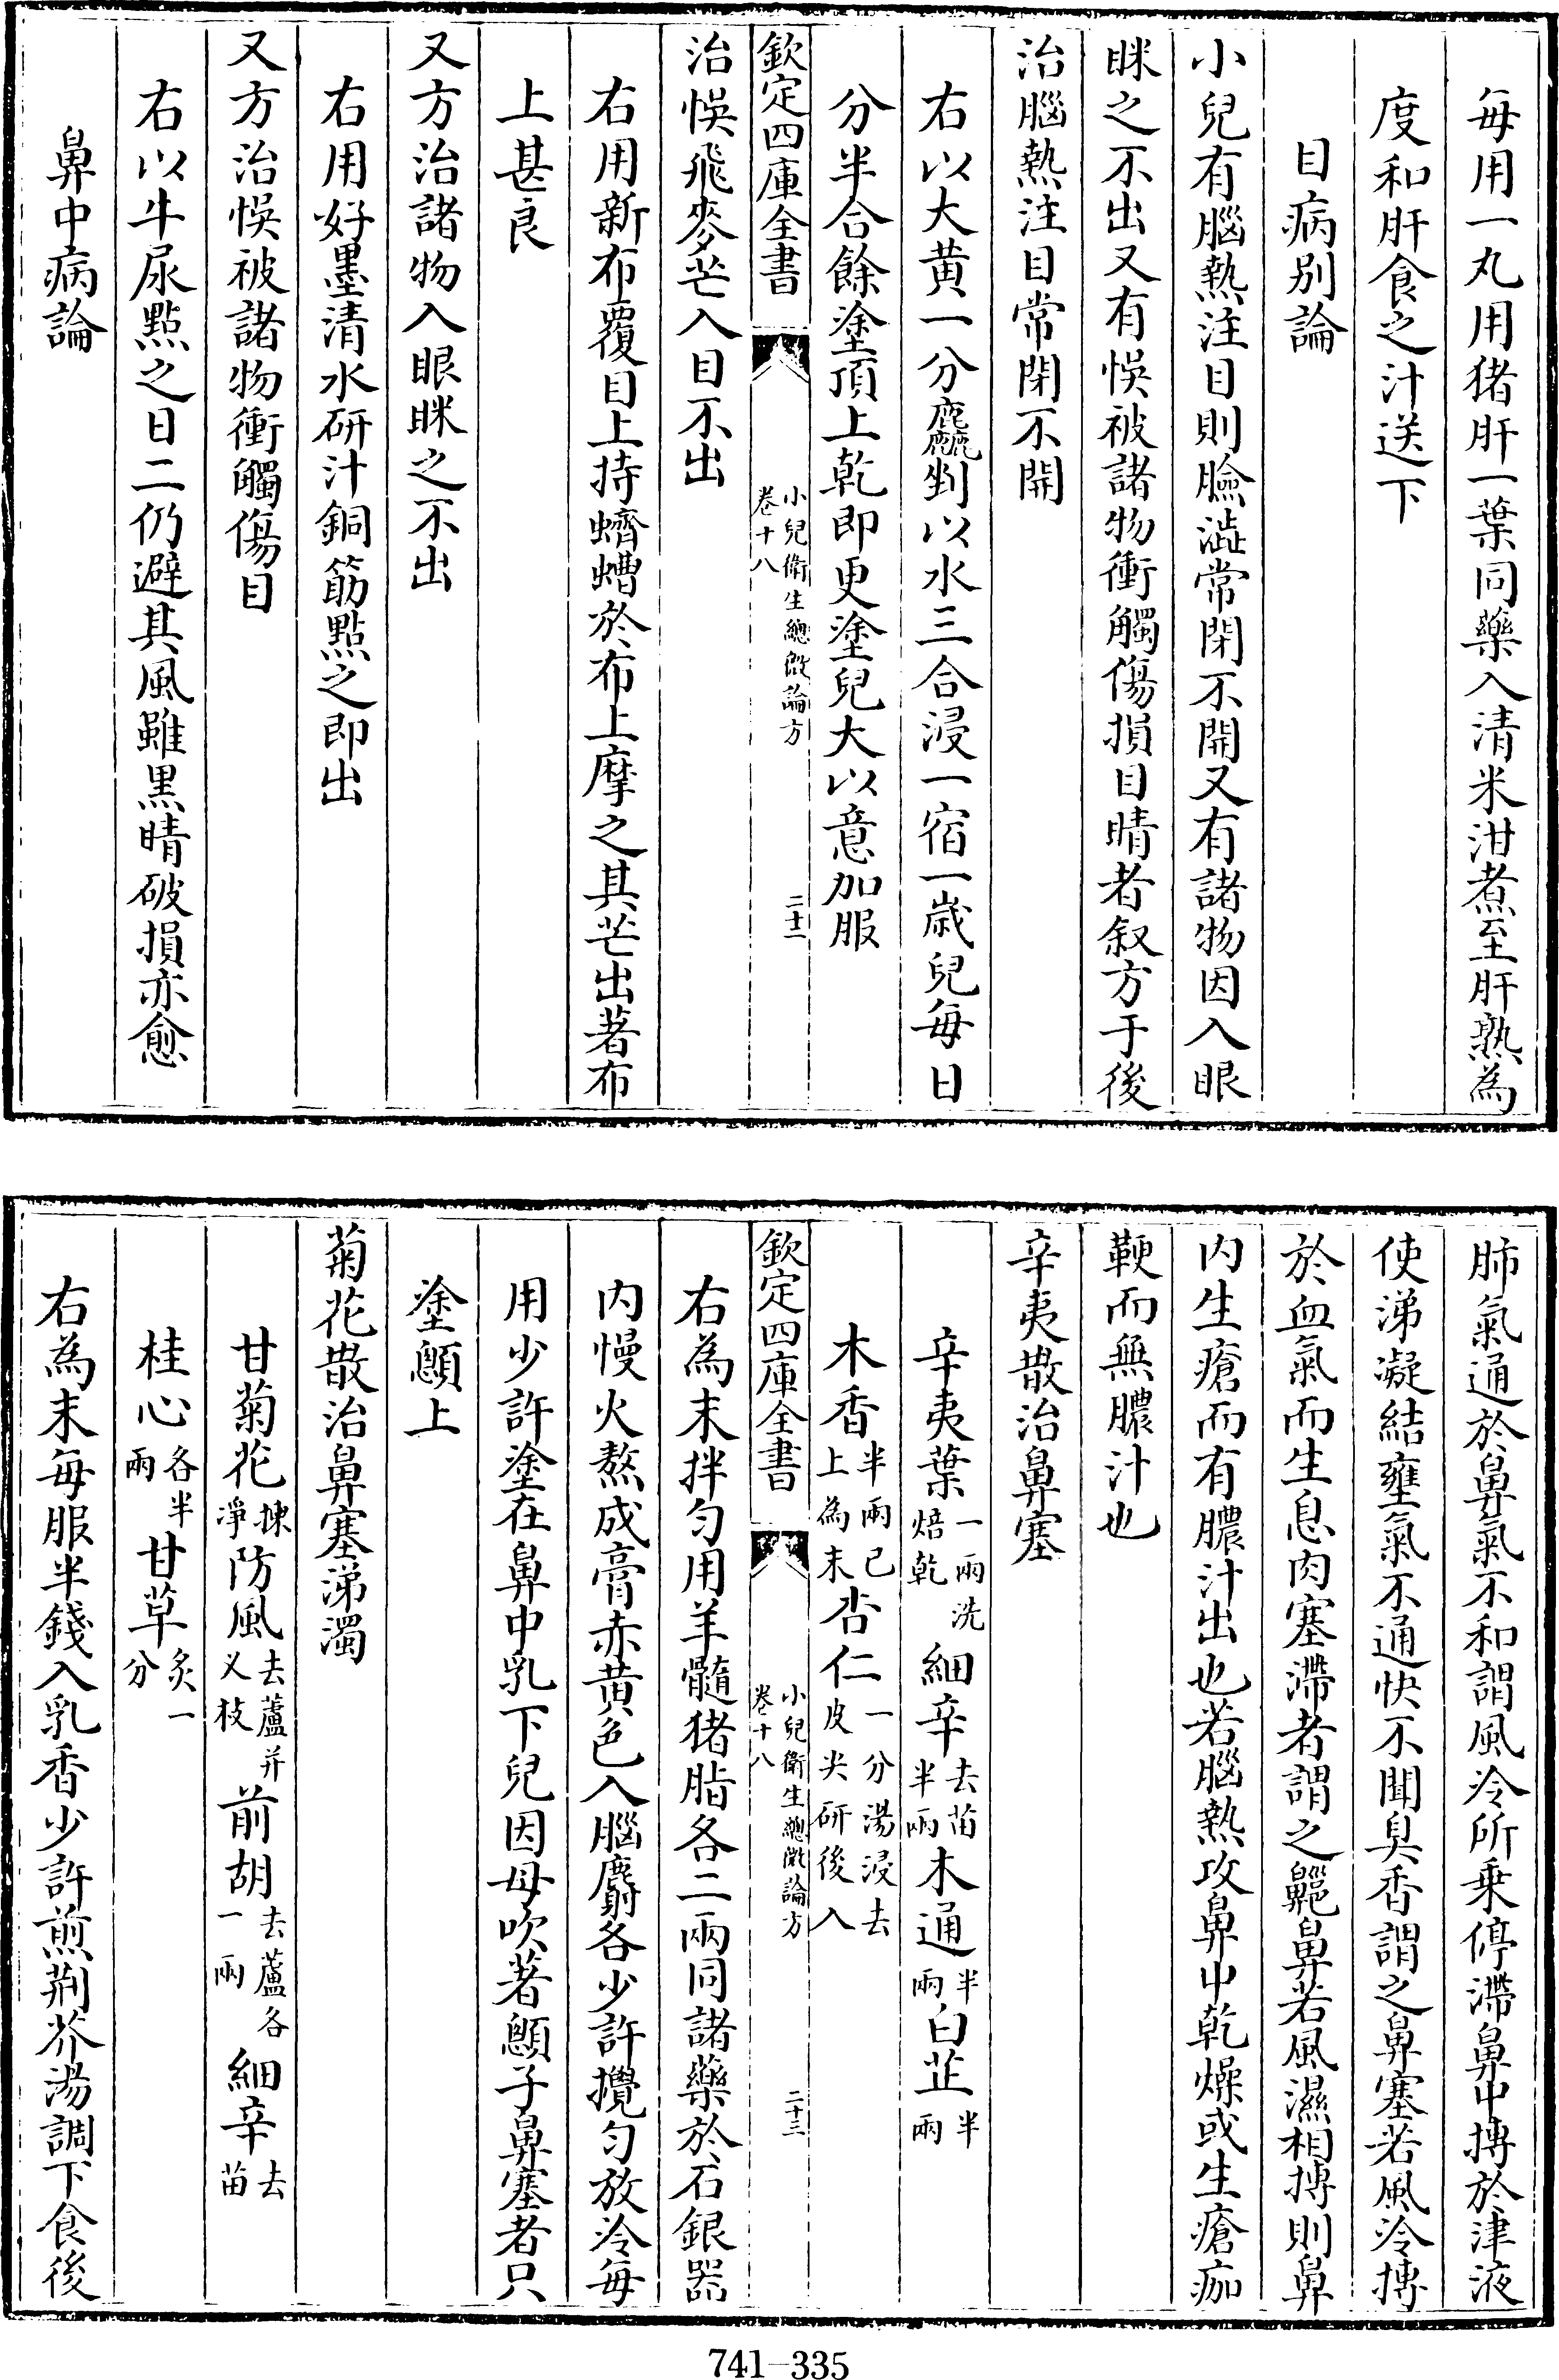 每用一丸用猪肝一葉同藥入清米泔煮至肝熟為
度和肝食之汁送下
目病别論
小兒有腦熱注目則臉澁常閉不開又有諸物因入眼
眯之不出又有悞被諸物衝觸傷損目睛者叙方于後
治腦熱注目常閉不開
右以大黄一分麤剉以水三合浸一宿一歲兒每日
分半合餘塗頂上乾即更塗兒大以意加服
欽定四庫全書
小兒衛生總微論方
卷十八
二十二
治悞飛麥芒入目不出
右用新布覆目上持蠐螬於布上摩之其芒出著布
上甚良
又方治諸物入眼眯之不出
右用好墨清水研汁銅筋點之即出
又方治悞被諸物衝觸傷目
右以牛尿點之日二仍避其風雖黑睛破損亦愈
鼻中病論
肺氣通於鼻氣不和謂風冷所乗停滯鼻中摶於津液
使涕凝結壅氣不通快不聞臭香謂之鼻塞若風冷摶
於血氣而生息肉塞滯者謂之齆鼻若風濕相摶則鼻
内生瘡而有膿汁出也若腦熱攻鼻中乾燥或生瘡痂
鞕而無膿汁也
辛夷散治鼻塞
辛夷葉一兩洗焙乾細辛去苗半兩木通半兩白芷半兩
木香半兩已上為末杏仁一分湯浸去皮尖研後入
欽定四庫全書
小兒衛生總微論方
卷十八
二十三
右為末拌匀用羊髓猪脂各二兩同諸藥於石銀器
内慢火熬成膏赤黄色入腦麝各少許攪匀放冷每
用少許塗在鼻中乳下兒因母吹著顖子鼻塞者只
塗顖上
菊花散治鼻塞涕濁
甘菊花揀淨防風去蘆并乂枝前胡去蘆各一兩細辛去苗
桂心各半兩甘草炙一分
右為末每服半錢入乳香少許煎荆芥湯調下食後
741-335